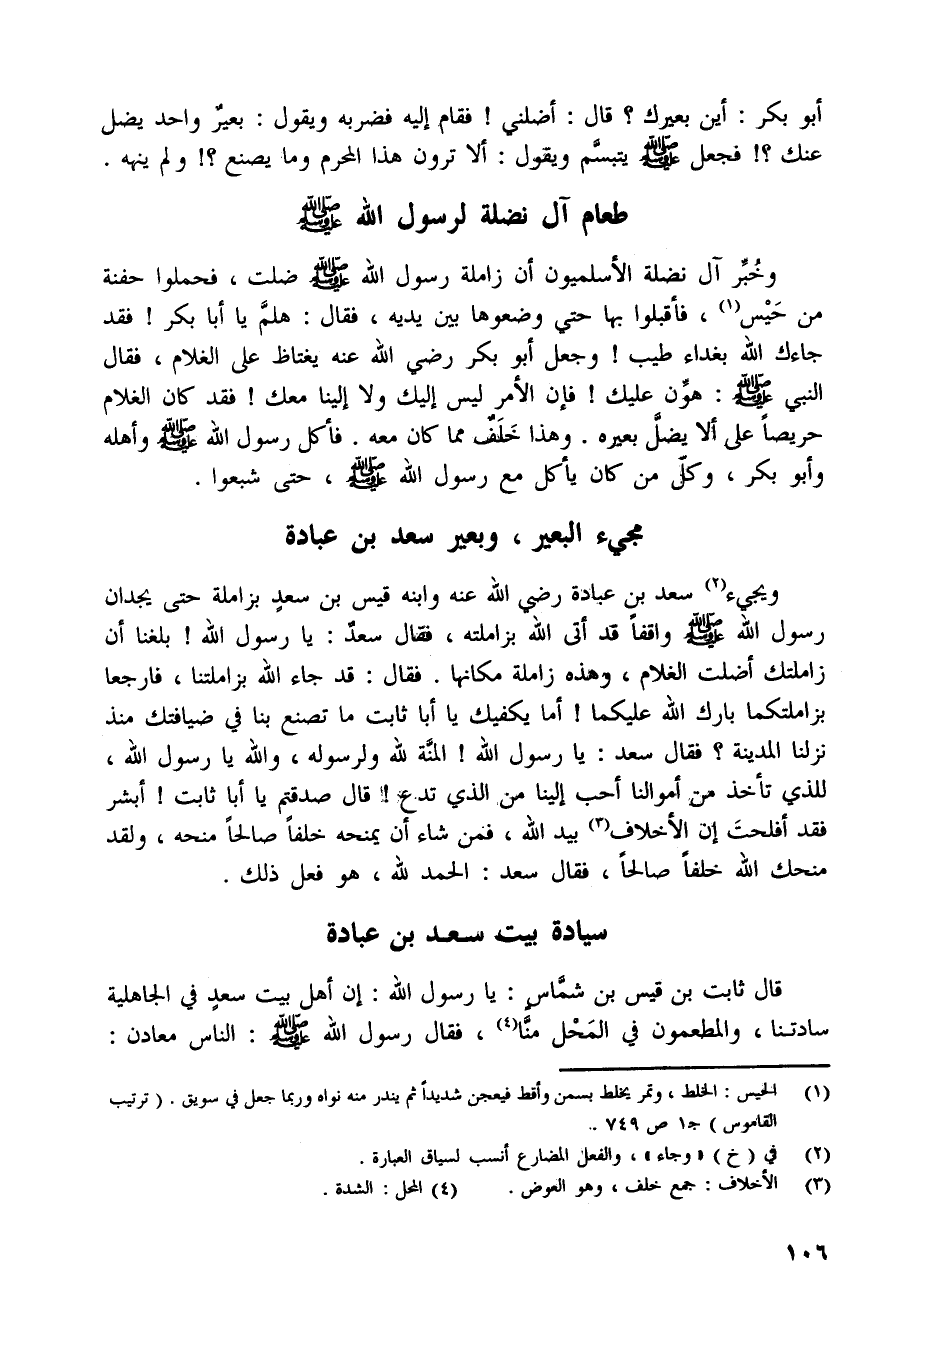 أبو بكر : أين بعيرك ؟ قال : أضلني ! فقام إليه فضربه ويقول : بعيرٌ واحد يضل
عنك ؟! فجعل ﷺ يتبسَّم ويقول : ألا ترون هذا المحرم وما يصنع ؟! ولم ينهه .
طعام آل نضلة لرسول الله ﷺ
وخُبِّر آل نضلة الأسلميون أن زاملة رسول الله ﷺ ضلت ، فحملوا حفنة
من حَيْس(١) ، فأقبلوا بها حتي وضعوها بين يديه ، فقال : هلمَّ يا أبا بكر ! فقد
جاءك الله بغداء طيب ! وجعل أبو بكر رضي الله عنه يغتاظ على الغلام ، فقال
النبي ﷺ : هوِّن عليك ! فإن الأمر ليس إليك ولا إلينا معك ! فقد كان الغلام
حريصاً على ألا يضلَّ بعيره . وهذا خَلَفٌ مما كان معه . فأكل رسول الله ﷺ وأهله
وأبو بكر ، وكلّ من كان يأكل مع رسول الله ﷺ ، حتى شبعوا .
مجيء البعير ، وبعير سعد بن عبادة
ويجيء(٢) سعد بن عبادة رضي الله عنه وابنه قيس بن سعدٍ بزاملة حتى يجدان
رسول الله ﷺ واقفاً قد أتى الله بزاملته ، فقال سعدٌ : يا رسول الله ! بلغنا أن
زاملتك أضلت الغلام ، وهذه زاملة مكانها . فقال : قد جاء الله بزاملتنا ، فارجعا
بزاملتكما بارك الله عليكما ! أما يكفيك يا أبا ثابت ما تصنع بنا في ضيافتك منذ
نزلنا المدينة ؟ فقال سعد : يا رسول الله ! المنَّة لله ولرسوله ، والله يا رسول الله ،
للذي تأخذ من أموالنا أحب إلينا من الذي تدع !! قال صدقتم يا أبا ثابت ! أبشر
فقد أفلحتَ إن الأخلاف(٣) بيد الله ، فمن شاء أن يمنحه خلفاً صالحاً منحه ، ولقد
منحك الله خلفاً صالحاً ، فقال سعد : الحمد لله ، هو فعل ذلك .
سيادة بيت سعد بن عبادة
قال ثابت بن قيس بن شمَّاسٍ : يا رسول الله : إن أهل بيت سعدٍ في الجاهلية
سادتنا ، والمطعمون في المَحْل منَّا(٤) ، فقال رسول الله ﷺ : الناس معادن :
(١) الحيس : الخلط ، وتمر يخلط بسمن وأقط فيعجن شديداً ثم يندر منه نواه وربما جعل في سويق . ( ترتيب
القاموس ) جـ١ ص ٧٤٩ ..
(٢) في ( خ ) « وجاء » ، والفعل المضارع أنسب لسياق العبارة .
(٣) الأخلاف : جمع خلف ، وهو العوض . (٤) المحل : الشدة .
١٠٦